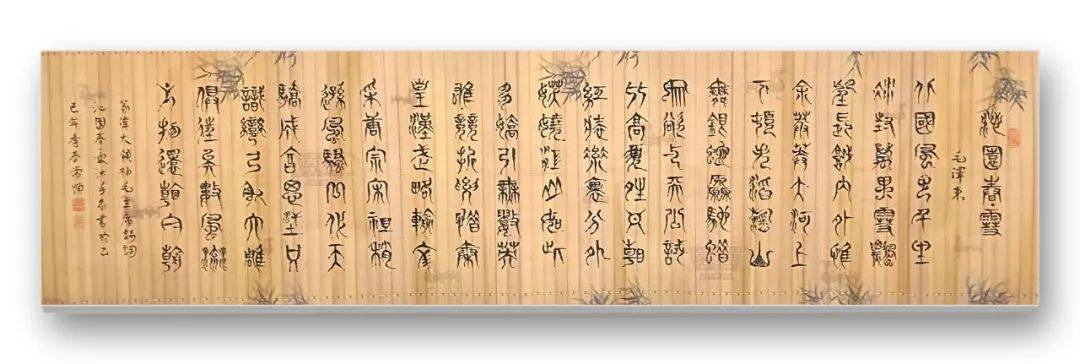 沁園春·雪
毛澤東
北國風光千里
冰封萬里雪飄
望長城內外惟
余莽莽大河上
下頓失滔滔山
舞銀蛇原馳蠟
象欲與天公試
比高須晴日看
紅裝素裹分外
妖嬈江山如此
多嬌引無數英
雄競折腰惜秦
皇漢武略輸文
采唐宗宋祖稍
遜風騷一代天
驕成吉思汗只
識彎弓射大雕
俱往矣數風流
人物還看今朝
篆偉大領袖毛主席詩詞
沁園春雪沐手恭書於乙
巳年季春